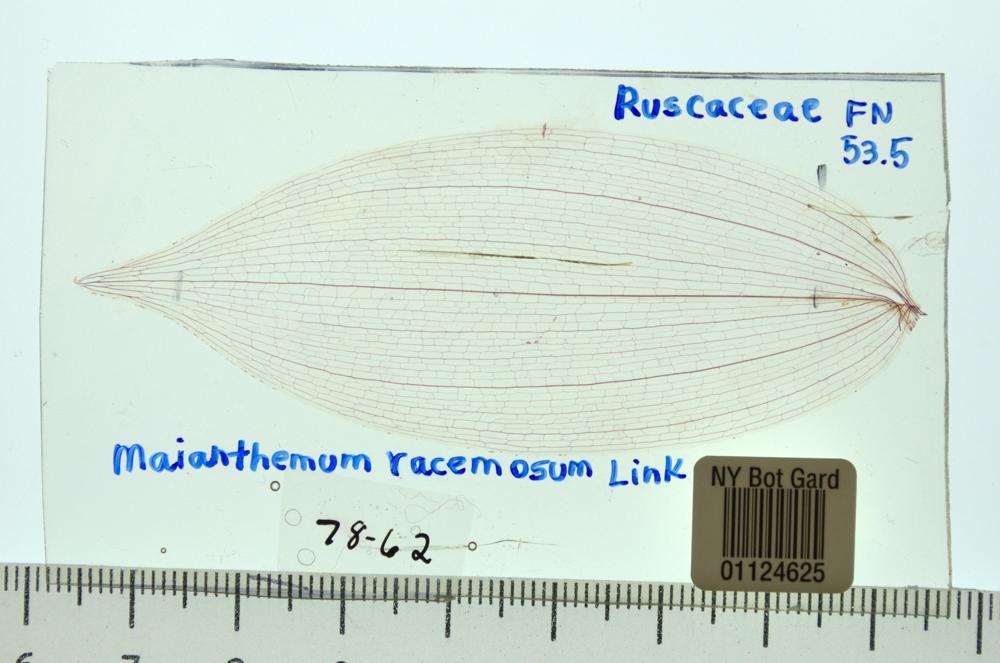 Ruscaceae FN
53.5
Maianthemum racemosum Link
78-62
NY Bot Gard
01124625
6 7 8 9